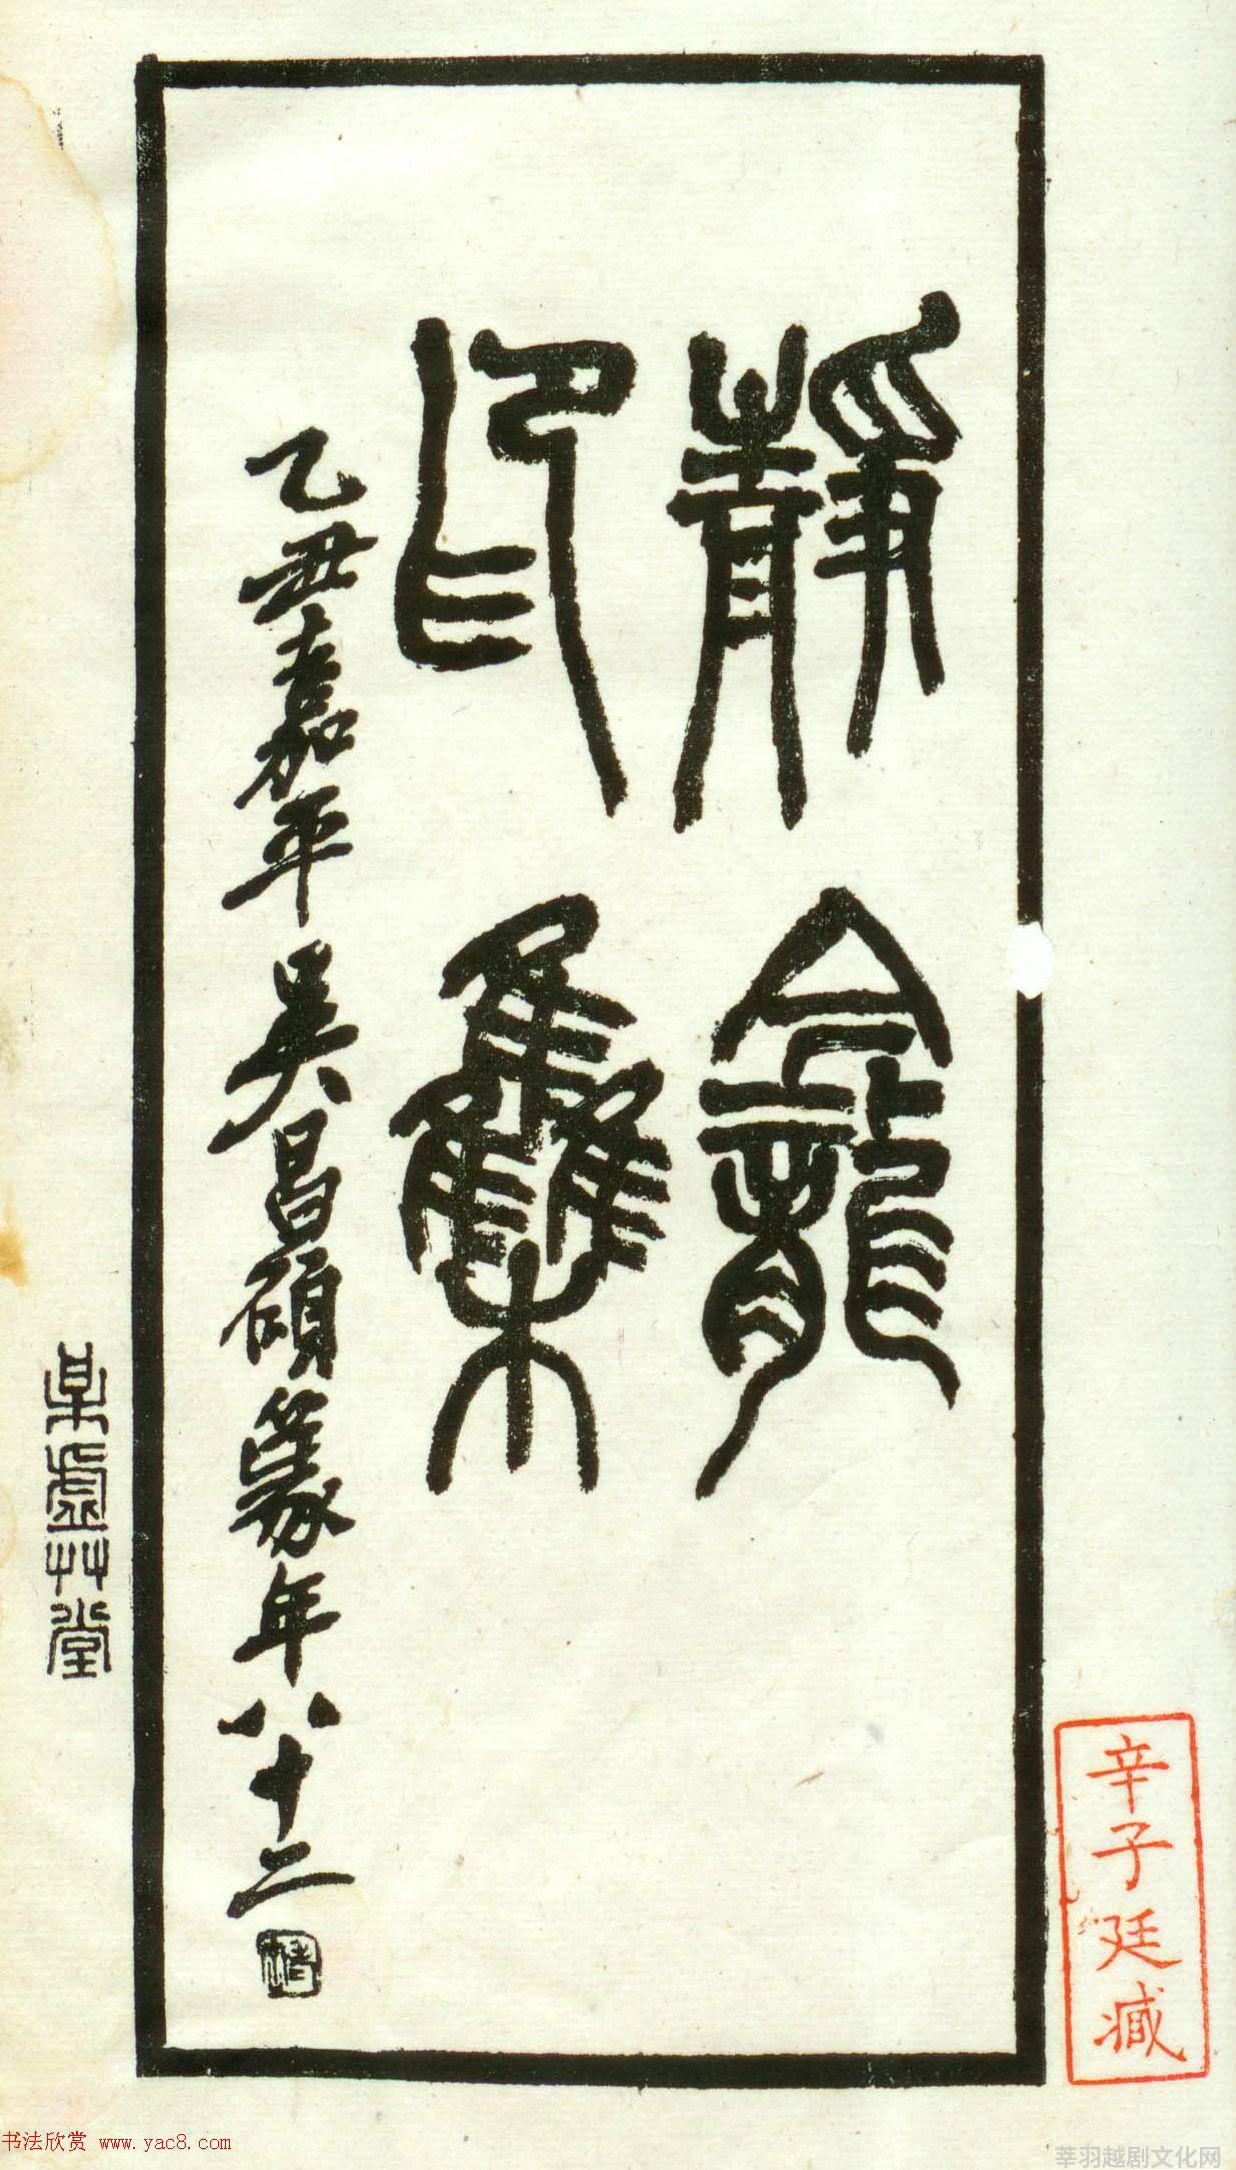 靜龕
印集
乙丑嘉平吳昌碩篆年八十二
某虛艸堂
辛子廷藏
书法欣赏 www.yac8.com
莘羽越剧文化网